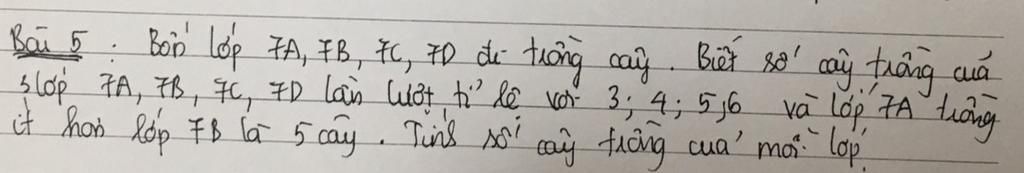 Bài 5 : Bốn lớp 7A, 7B, 7C, 7D đi trồng cây. Biết số cây trồng của
3 lớp 7A, 7B, 7C, 7D lần lượt tỉ lệ với 3; 4; 5; 6 và lớp 7A trồng
ít hơn lớp 7B là 5 cây. Tính số cây trồng của mỗi lớp.